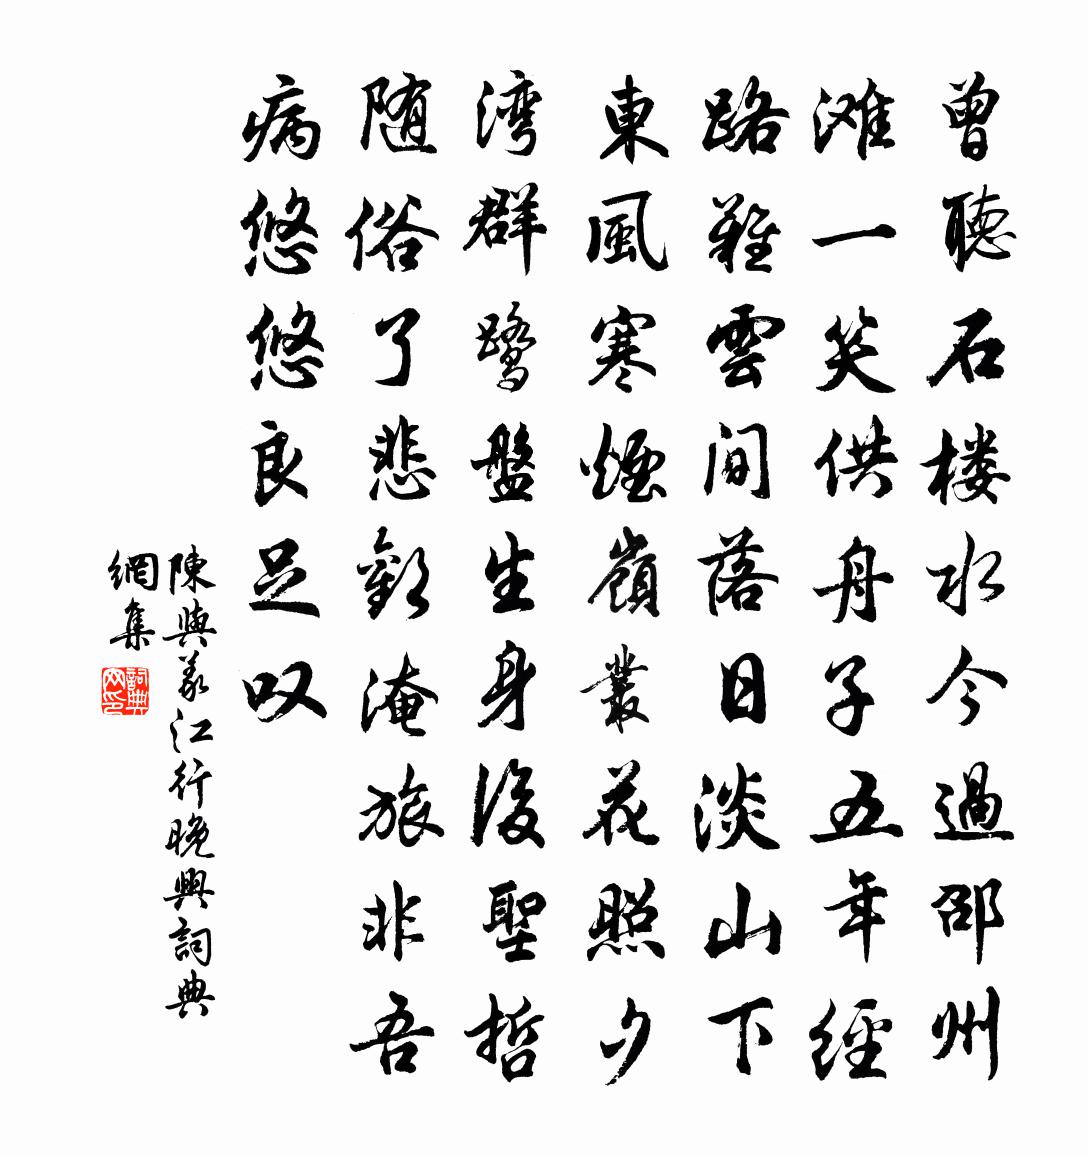 曾聽石楼水今過邵州
滩一笑供舟子五年經
路難雲間落日淡山下
東風寒煙嶺叢花照夕
湾群鹭盤生身後聖哲
随俗了悲歡淹旅非吾
病悠悠良足叹
陳與義江行晚興詞典
網集
詞典
网印